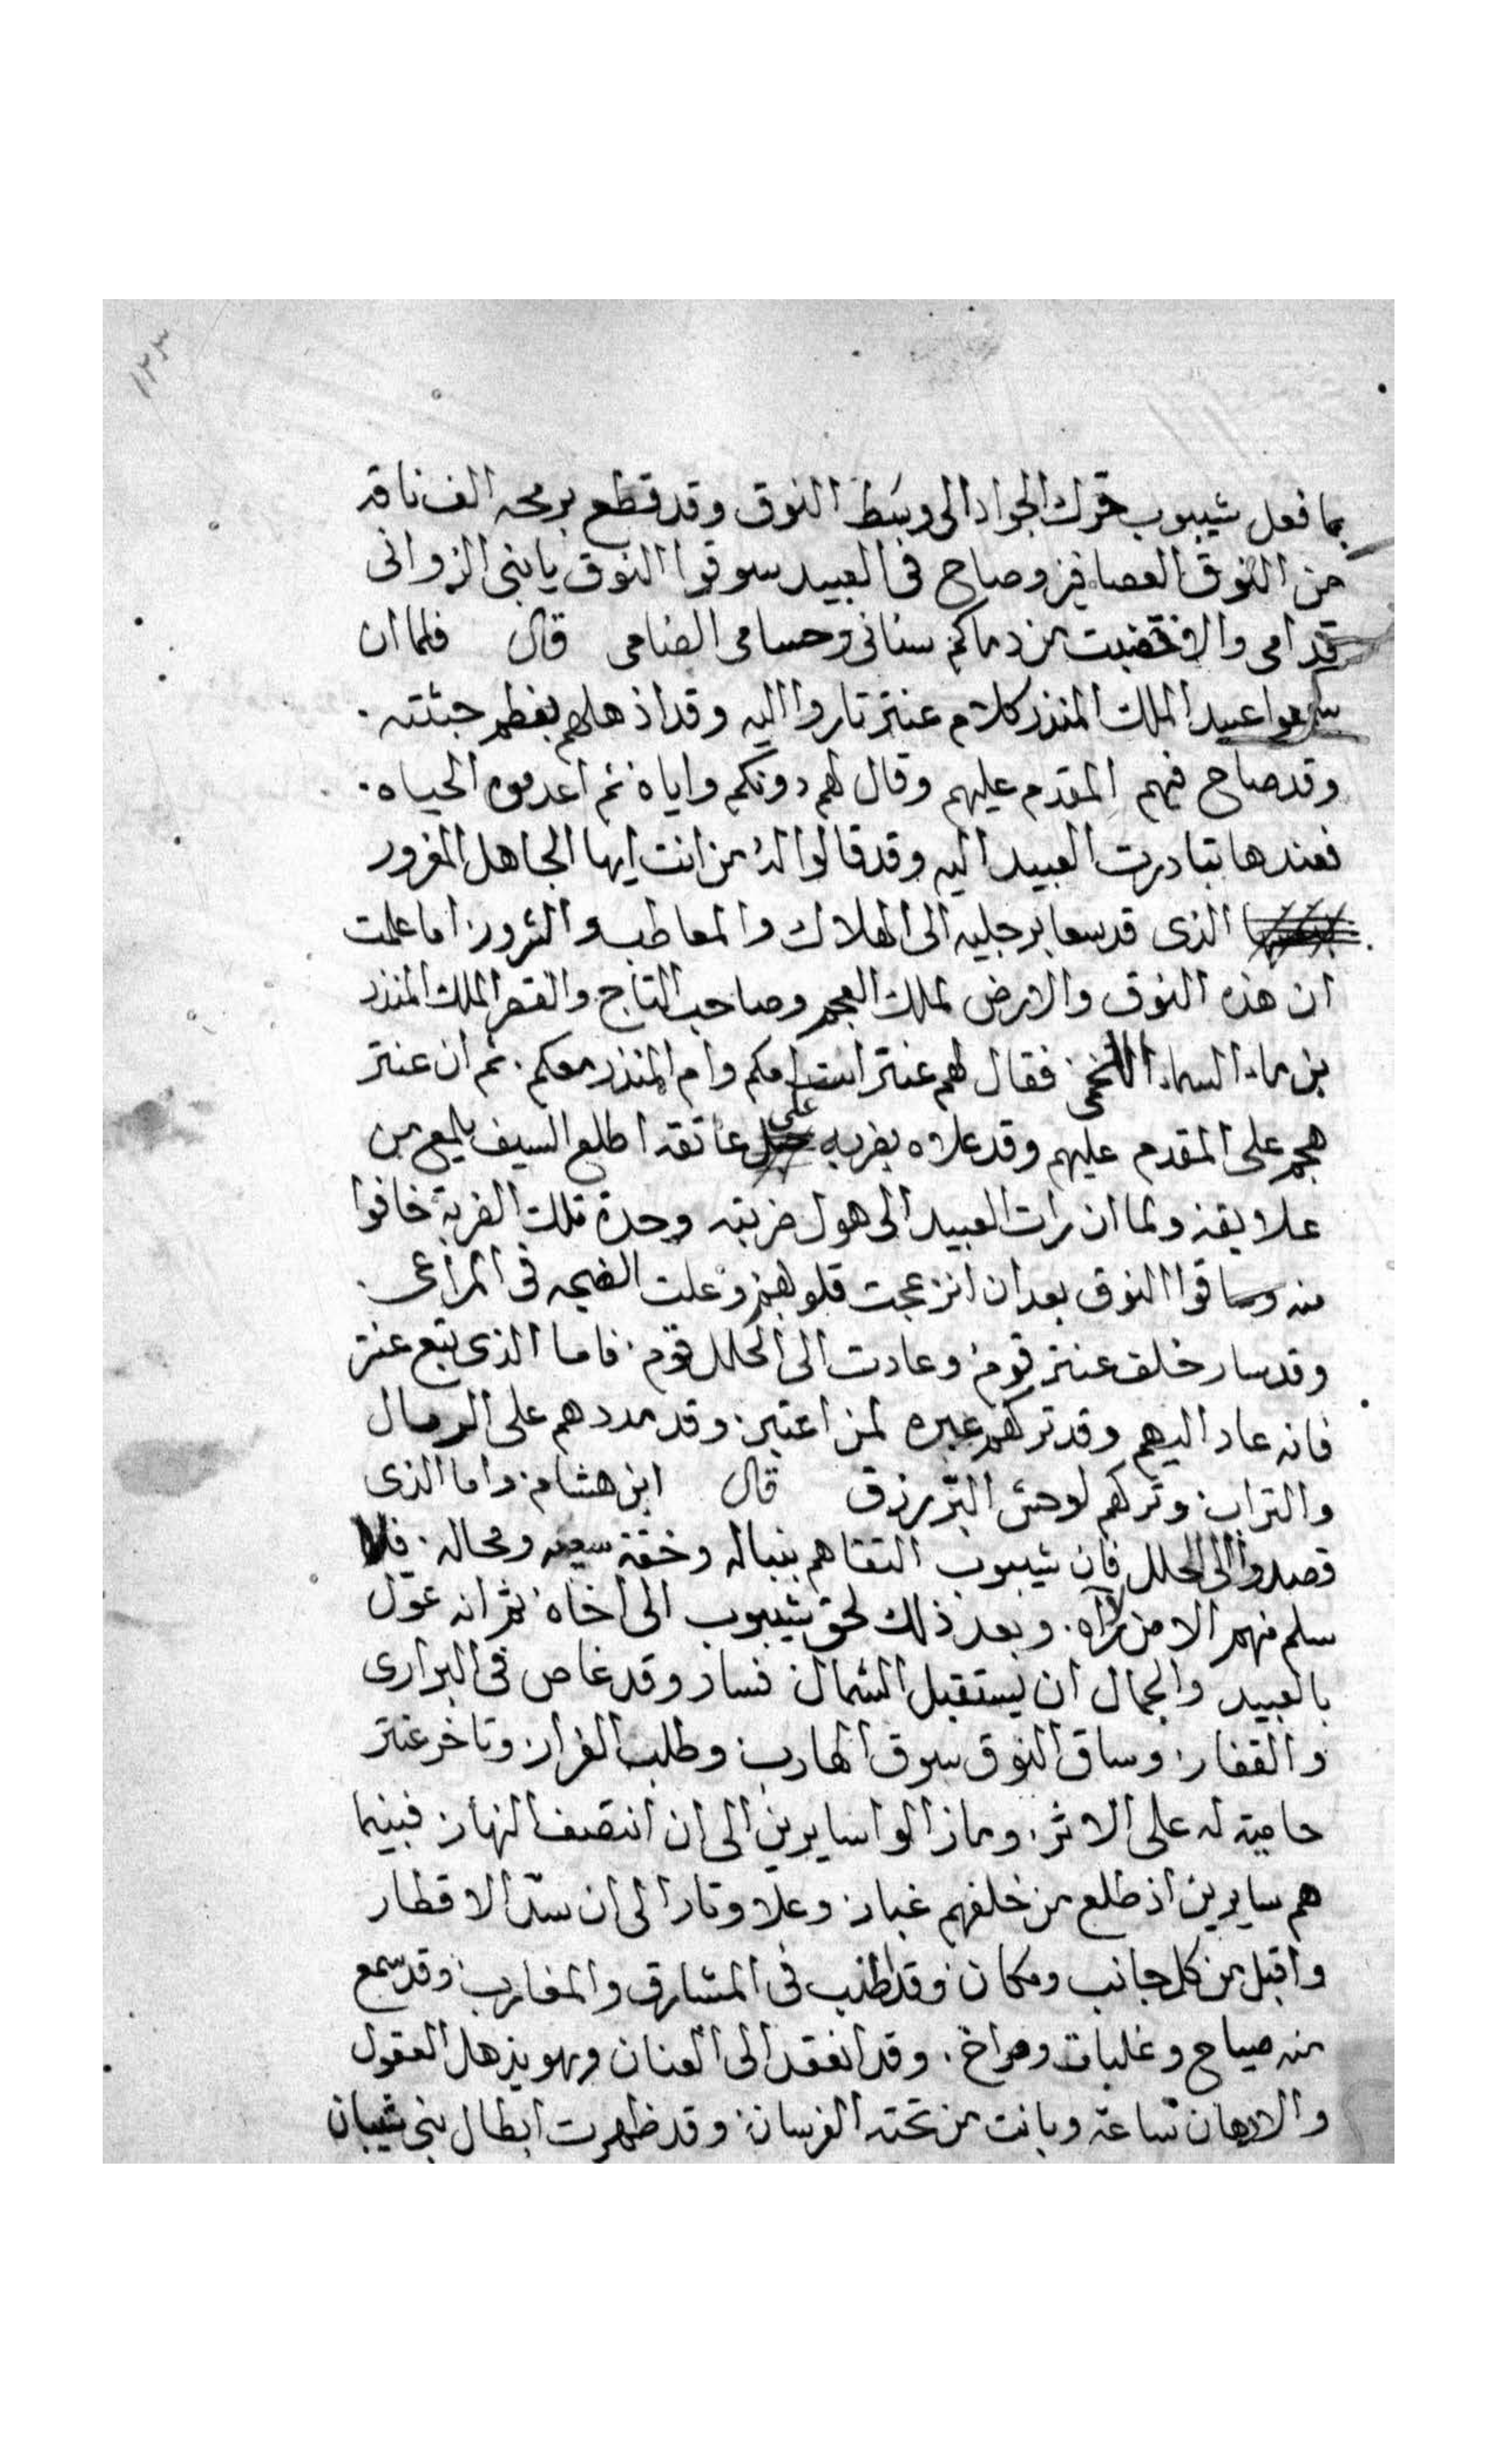 ١٢٣
بما فعل شيبوب حرك الجواد الى وسط النوق وقد قطع برمحه الف ناقه
من النوق العصافير وصاح فى العبيد سوقوا النوق يابنى الزوانى
قدامى والا خضبت من دماكم سنانى وحسامى الضامى قال فلما ان
سمعوا عبيد الملك المنذر كلام عنتر تاروا اليه وقد اذهلهم بعظم جثته.
وقد صاح فيهم المقدم عليهم وقال لهم دونكم واياه ثم اعدموه الحياه.
فعندها تبادرت العبيد اليه وقد قالوا له من انت ايها الجاهل المغرور
الذى قد سعا برجليه الى الهلاك والمعاطب والشرور. اما علمت
ان هذه النوق والارض لملك العجم وصاحب التاج والقصر الملك المنذر
بن ماء السماء اللخمى فقال لهم عنتر امكم وام المنذر معكم. ثم ان عنتر
هجم على المقدم عليهم وقد علاه بضربه على عاتقه اطلع السيف يلمع من
علايقه ولما ان رات العبيد الى هول ضربته وحدة تلك الضربة خافوا
منه وساقوا النوق بعد ان انزعجت قلوبهم وعلت الضجه فى المراعى.
وقد سار خلف عنتر قوم. وعادت الى الحلل قوم. فاما الذى تبع عنتر
فانه عاد اليهم وقد تركهم عبره لمن اعتبر. وقد مددهم على الرمال
والتراب. وتركهم لوحش البر رزق قال ابن هشام. واما الذى
قصدوا الى الحلل فان شيبوب التقاهم بنباله وخفة سعيه ومحاله. فلا
سلم منهم الا من لا رآه. وبعد ذلك لحق شيبوب الى اخاه ثم انه عول
بالعبيد والجمال ان يستقبل الشمال فسار وقد غاص فى البرارى
والقفار. وساق النوق سوق الهارب وطلب الفرار. وتاخر عنتر
حامية له على الاثر. وما زالوا سايرين الى ان انتصف النهار. فبينما
هم سايرين اذ طلع من خلفهم غبار. وعلا وتار الى ان سد الاقطار
واقبل من كل جانب ومكان وقد اطنب فى المشارق والمغارب. وقد سمع
منه صياح وغلبات وصراخ. وقد انعقد الى العنان وهو يذهل العقول
والادهان ساعة وبانت من تحته الفرسان. وقد ظهرت ابطال بنى شيبان